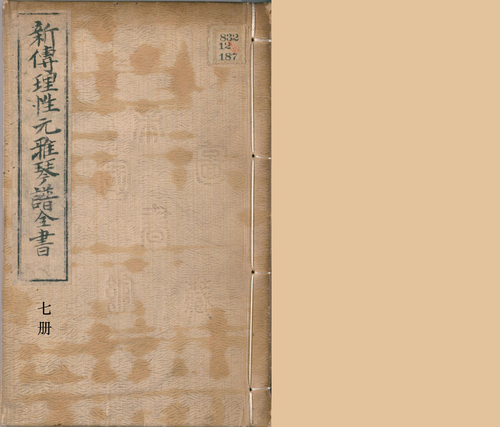 新傳理性元雅琴譜全書
七册
832
12
187